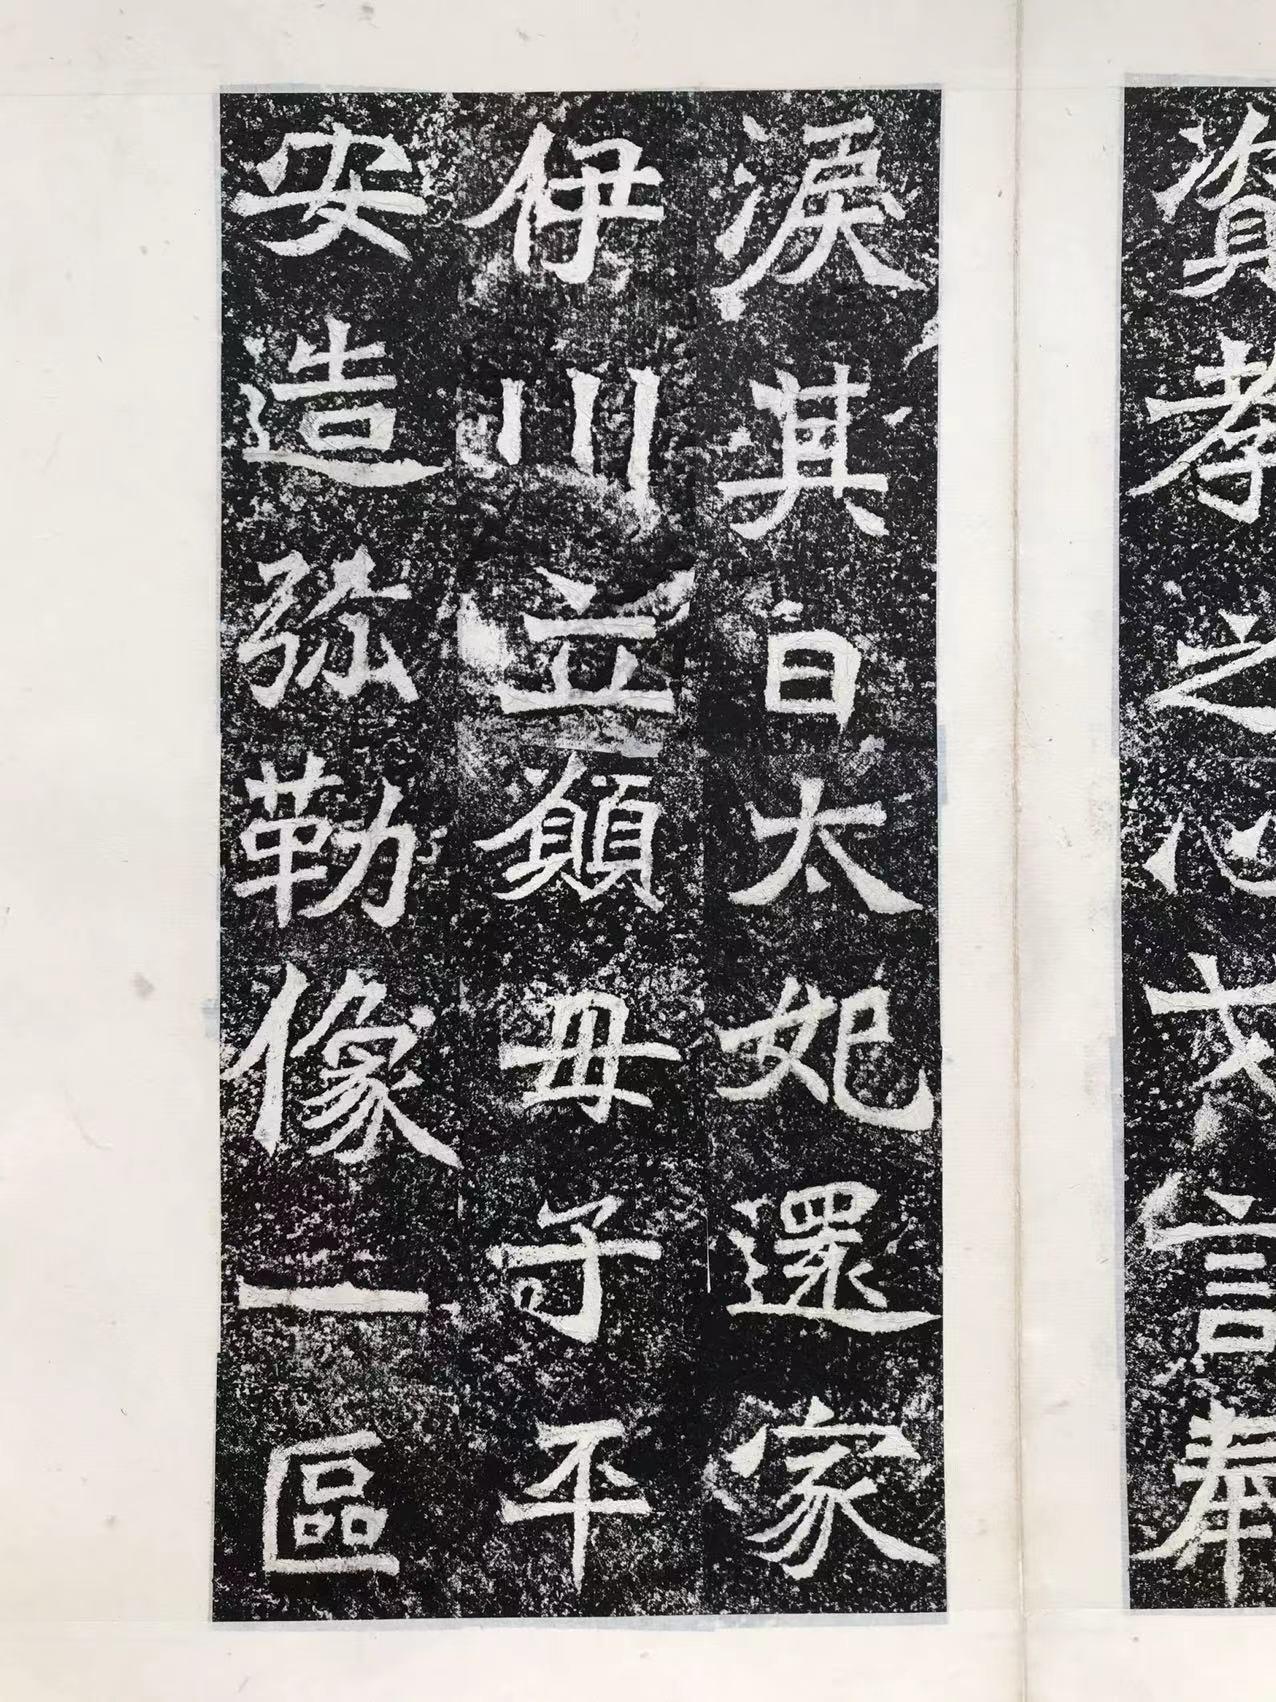 資孝之心戈言奉
淚其日太妃還家
伊川立願母子平
安造弥勒像一區